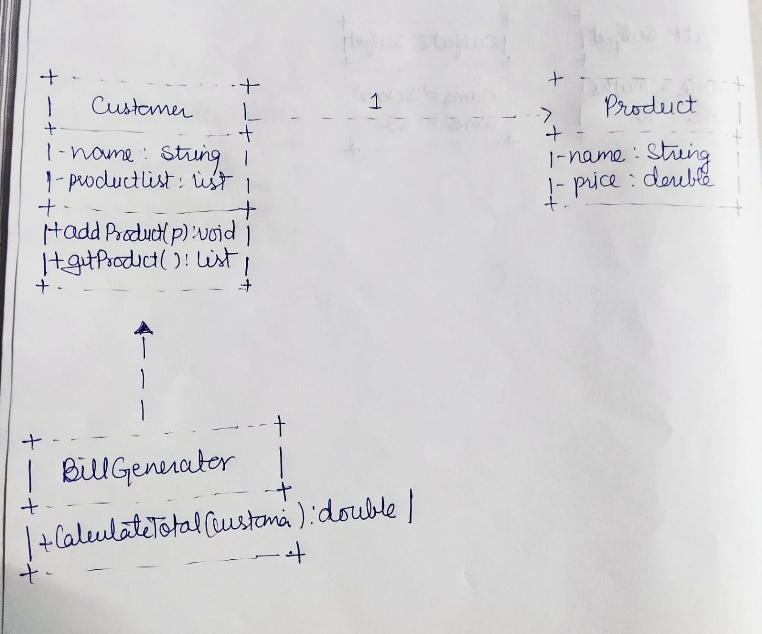 Customer
- name : String
- productlist : list
+ addProduct(p) : void
+ getProduct( ) : List
1
Product
- name : String
- price : double
BillGenerator
+ CalculateTotal( ) : double